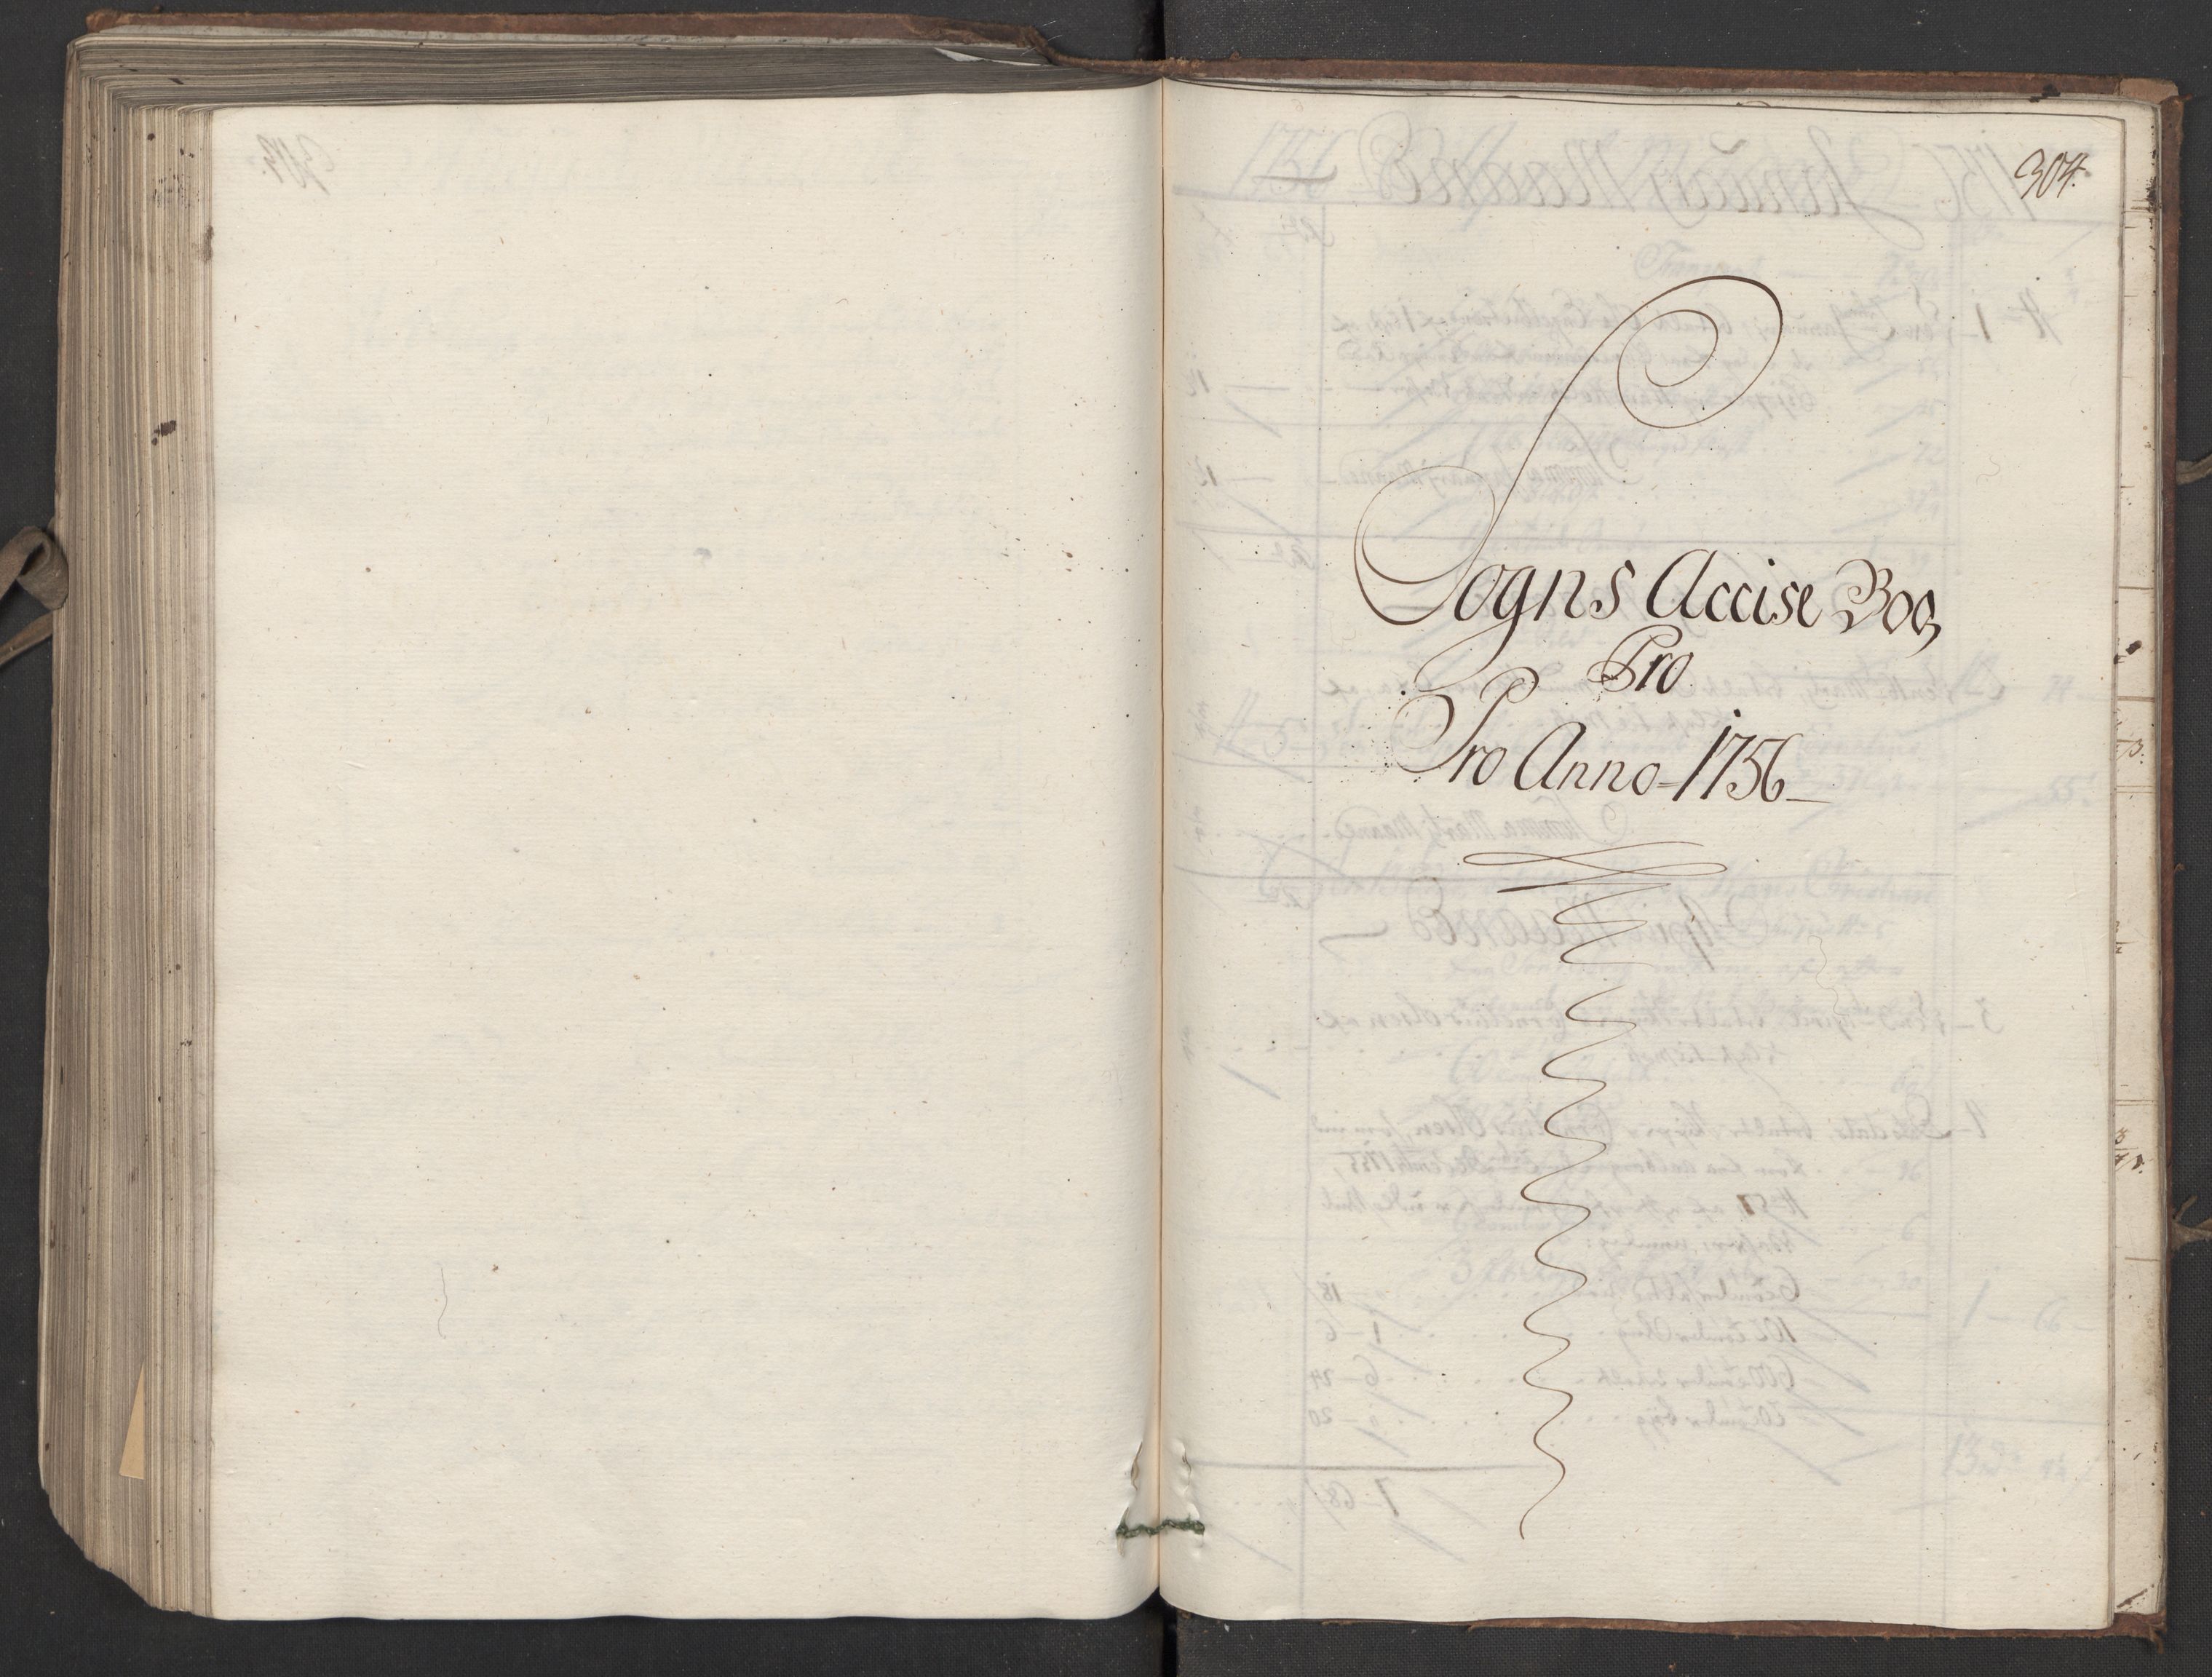 304.
Sogns Accise Bog
Pro
Pro Anno 1756